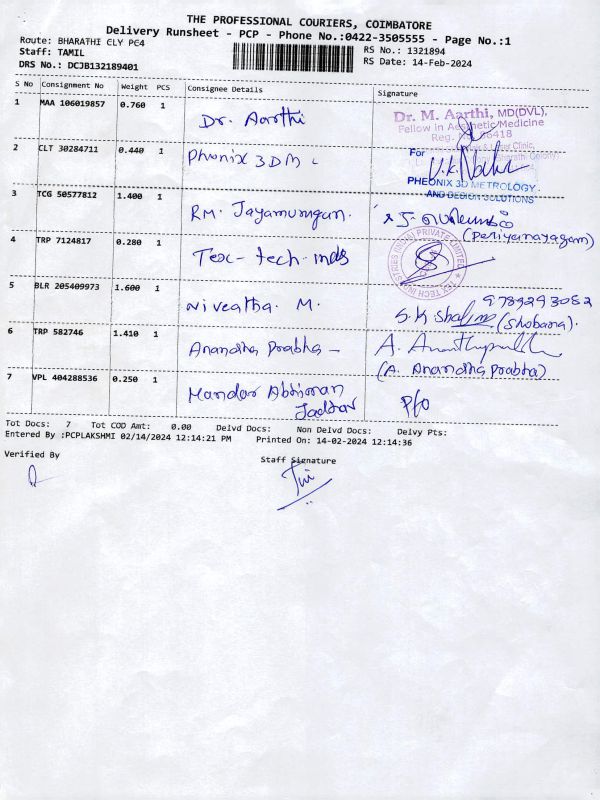 THE PROFESSIONAL COURIERS, COIMBATORE
Delivery Runsheet - PCP - Phone No.:0422-3505555 - Page No.:1
Route: BHARATHI CLY PC4
Staff: TAMIL
DRS No.: DCJB132189401
RS No.: 1321894
RS Date: 14-Feb-2024
S No Consignment No Weight PCS Consignee Details Signature
1 MAA 106019857 0.760 1 Dr. Aarthi
Dr. M. Aarthi, MD(DVL),
Fellow in Aesthetic Medicine
Reg. 6418
2 CLT 30284711 0.440 1 Phonix 3DM
For
PHEONIX 3D METROLOGY
AND DESIGN SOLUTIONS
3 TCG 50577812 1.400 1 RM. Jayamurugan.
(Periyanayagam)
4 TRP 7124817 0.280 1 Tex-tech inds
TEX TECH INDUSTRIES (INDIA) PRIVATE LIMITED
5 BLR 205409973 1.600 1 Niveatha. M.
9789293082
S.K Shobana (Shobana).
6 TRP 582746 1.410 1 Anandha Prabha -
(A. Anandha Prabha)
7 VPL 404288536 0.250 1 Mandar Abhiman
Jadhav
P/o
Tot Docs: 7 Tot COD Amt: 0.00 Delvd Docs: Non Delvd Docs: Delvy Pts:
Entered By :PCPLAKSHMI 02/14/2024 12:14:21 PM Printed On: 14-02-2024 12:14:36
Verified By
Staff Signature